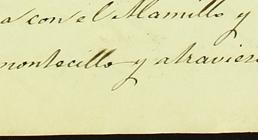 a con el Alamillo y
montecillo y atravies